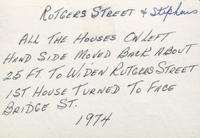 RUTGERS STREET & Stephens
ALL THE HOUSES ON LEFT
HAND SIDE MOVED BACK ABOUT
25 FT TO WIDEN RUTGERS STREET
1ST HOUSE TURNED TO FACE
BRIDGE ST.
1974